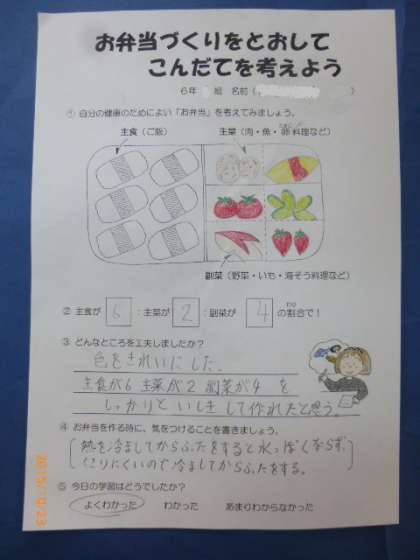 お弁当づくりをとおして
こんだてを考えよう
6年 組 名前(
① 自分の健康のためによい「お弁当」を考えてみましょう。
主食(ご飯)
主菜(肉・魚・卵料理など)
副菜(野菜・いも・海そう料理など)
② 主食が 6 : 主菜が 2 : 副菜が 4 の割合で!
③ どんなところを工夫しましたか?
色をきれいにした。
主食が6 主菜が2 副菜が4 を
しっかりと いしき して作れたと思う。
④ お弁当を作る時に、気をつけることを書きましょう。
熱を冷ましてからふたをすると水っぽくならず、
くさりにくいので冷ましてからふたをする。
⑤ 今日の学習はどうでしたか?
よくわかった わかった あまりわからなかった
2015/10/23